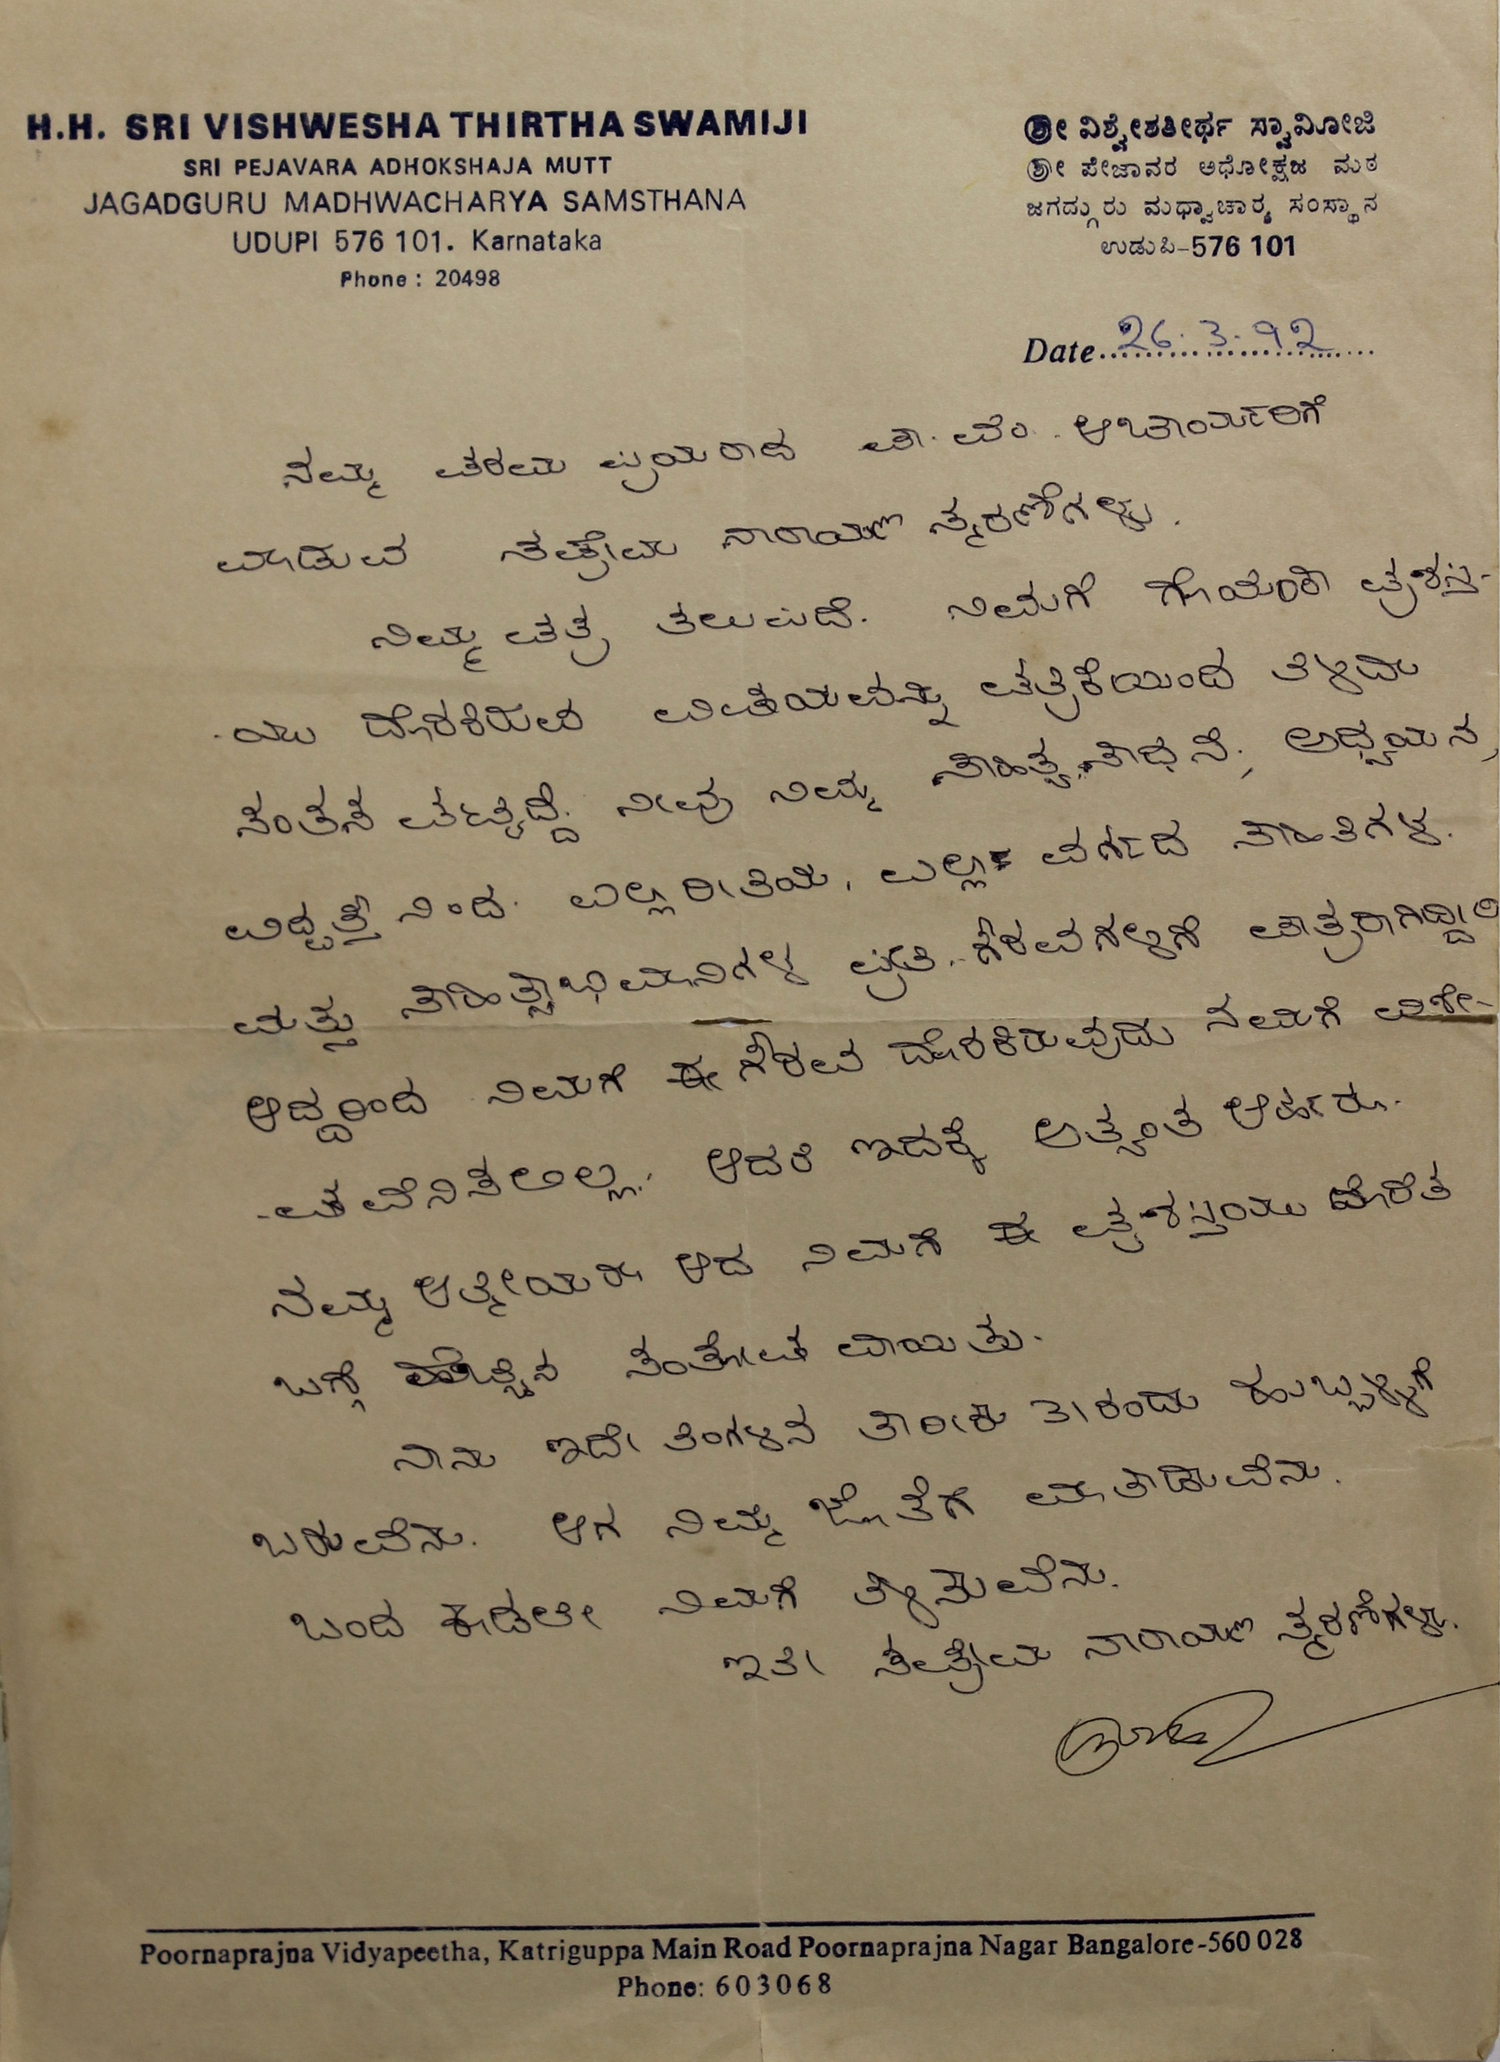 H.H. SRI VISHWESHA THIRTHA SWAMIJI
SRI PEJAVARA ADHOKSHAJA MUTT
JAGADGURU MADHWACHARYA SAMSTHANA
UDUPI 576 101. Karnataka
Phone : 20498
ಶ್ರೀ ವಿಶ್ವೇಶತೀರ್ಥ ಸ್ವಾಮೀಜಿ
ಶ್ರೀ ಪೇಜಾವರ ಅಧೋಕ್ಷಜ ಮಠ
ಜಗದ್ಗುರು ಮಧ್ವಾಚಾರ್ಯ ಸಂಸ್ಥಾನ
ಉಡುಪಿ-576 101
Date 26.3.92
ನಮ್ಮ ಪರಮ ಪ್ರಿಯರಾದ ಪಾ. ವೆಂ. ಆಚಾರ್ಯರಿಗೆ
ಮಾಡುವ ಸಪ್ರೇಮ ನಾರಾಯಣ ಸ್ಮರಣೆಗಳು.
ನಿಮ್ಮ ಪತ್ರ ತಲುಪಿದೆ. ನಿಮಗೆ ಗೊಯೆಂಕಾ ಪ್ರಶಸ್ತಿ-
-ಯು ದೊರಕಿರುವ ವಿಷಯವನ್ನು ಪತ್ರಿಕೆಯಿಂದ ತಿಳಿದು
ಸಂತಸ ಪಟ್ಟಿದ್ದೆ. ನೀವು ನಿಮ್ಮ ಸಾಹಿತ್ಯ ಸಾಧನೆ, ಅಧ್ಯಯನ,
ವಿದ್ವತ್ತೆ ನಿಂದ ಎಲ್ಲ ರೀತಿಯ, ಎಲ್ಲ ವರ್ಗದ ಸಾಹಿತಿಗಳ
ಮತ್ತು ಸಾಹಿತ್ಯಾಭಿಮಾನಿಗಳ ಪ್ರೀತಿ ಗೌರವಗಳಿಗೆ ಪಾತ್ರರಾಗಿದ್ದೀರಿ
ಆದ್ದರಿಂದ ನಿಮಗೆ ಈ ಗೌರವ ದೊರಕಿರುವುದು ನಮಗೆ ವಿಶೇ-
-ಷವೆನಿಸಲಿಲ್ಲ. ಆದರೆ ಇದಕ್ಕೆ ಅತ್ಯಂತ ಅರ್ಹರೂ
ನಮ್ಮ ಆತ್ಮೀಯರೂ ಆದ ನಿಮಗೆ ಈ ಪ್ರಶಸ್ತಿಯು ದೊರೆತ
ಬಗ್ಗೆ ಹೆಚ್ಚಿನ ಸಂತೋಷ ವಾಯಿತು.
ನಾನು ಇದೇ ತಿಂಗಳಿನ ತಾರೀಕು ೩೧ರಂದು ಹುಬ್ಬಳ್ಳಿಗೆ
ಬರುವೆನು. ಆಗ ನಿಮ್ಮ ಜೊತೆಗೆ ಮಾತಾಡುವೆನು.
ಬಂದ ಕೂಡಲೇ ನಿಮಗೆ ತಿಳಿಸುವೆನು.
ಇತಿ ಸಪ್ರೇಮ ನಾರಾಯಣ ಸ್ಮರಣೆಗಳು.
Poornaprajna Vidyapeetha, Katriguppa Main Road Poornaprajna Nagar Bangalore-560 028
Phone: 603068